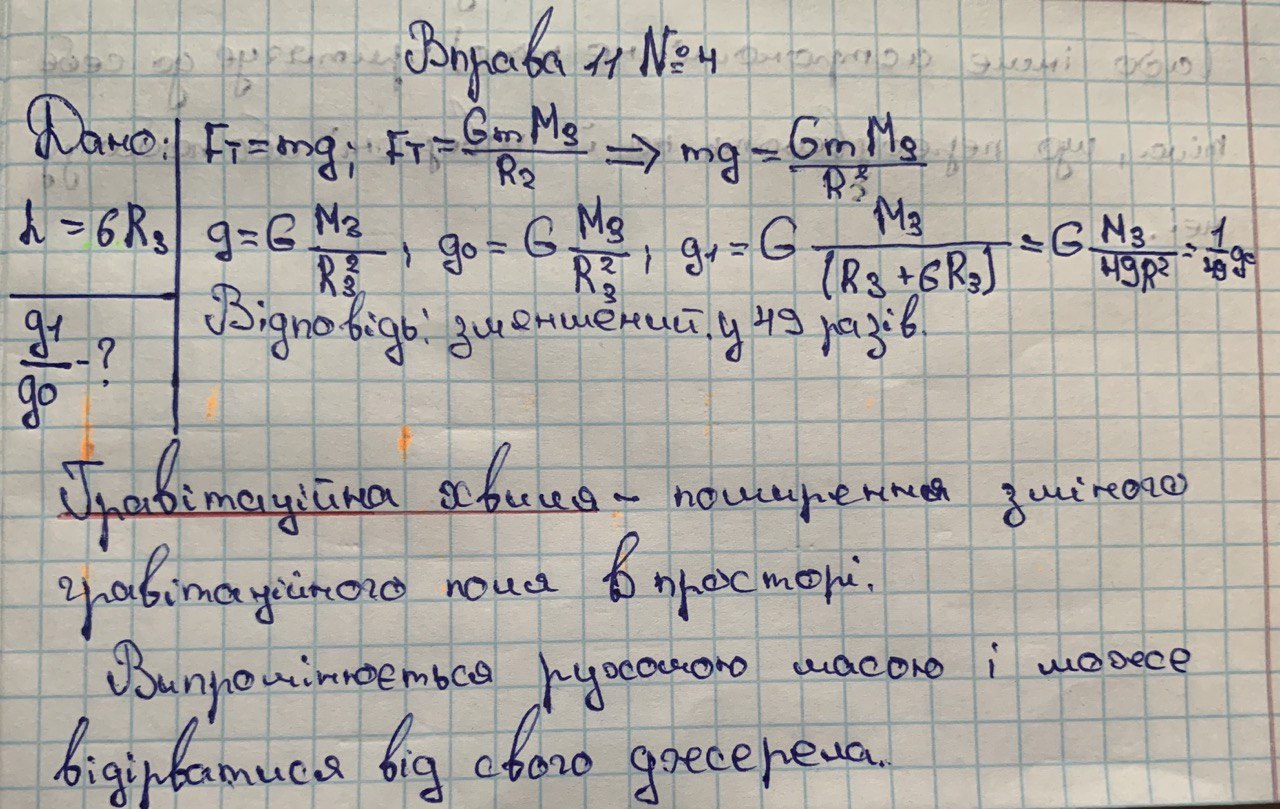 Вправа 11 № 4
Дано: F_T = mg; F_T = GmM_З / R_2 ⇒ mg = GmM_З / R_З^2
h = 6R_З
g = G M_З / R_З^2; g_0 = G M_З / R_З^2; g_1 = G M_З / (R_З + 6R_З) = G M_З / 49R^2 = 1/49 g_0
g_1 / g_0 - ?
Відповідь: зменшений у 49 разів.
Гравітаційна хвиля – поширення зміного
гравітаційного поля в просторі.
Випромінюється рухомою масою і може
відірватися від свого джерела.